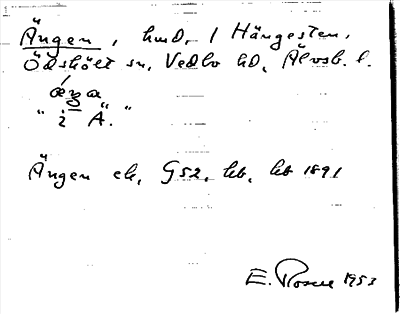 Ängen, hmd, / Hängesten,
Ödskölt sn, Vedbo hd, Älvsb. l.
äŋa
"i Ä."
Ängen ek, G52, hb, kb 1891
E. Rosell 1953